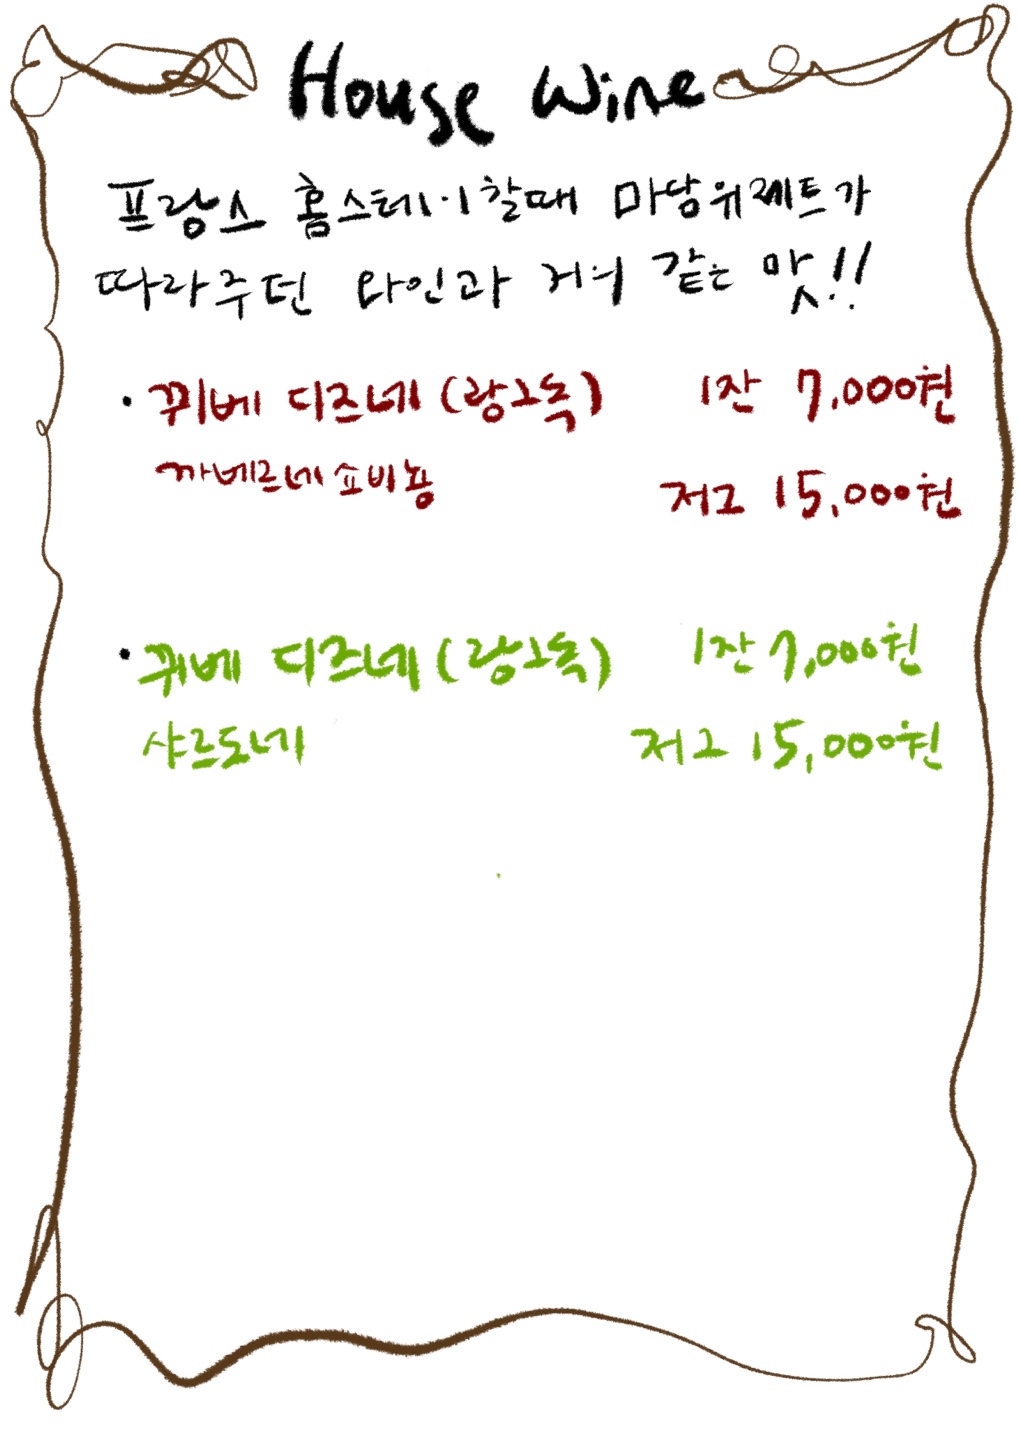 House Wine
프랑스 홈스테이할때 마담위제트가
따라주던 와인과 거의 같은 맛!!
· 뀌베 디즈네 (랑그독) 1잔 7,000원
까베르네 쇼비뇽 저그 15,000원
· 뀌베 디즈네 (랑그독) 1잔 7,000원
샤르도네 저그 15,000원